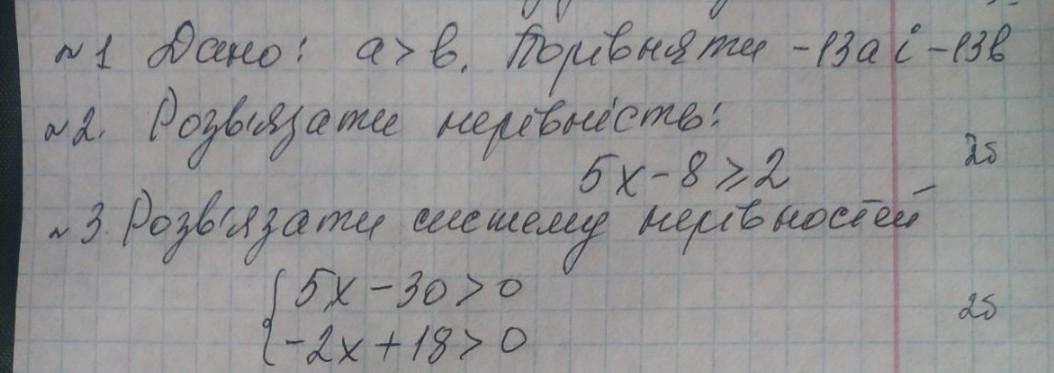 №1 Дано: a > b. Порівняти -13a і -13b
№2. Розв'язати нерівність:
5x - 8 ≥ 2 2б
№3. Розв'язати систему нерівностей
{ 5x - 30 > 0
-2x + 18 > 0 2б